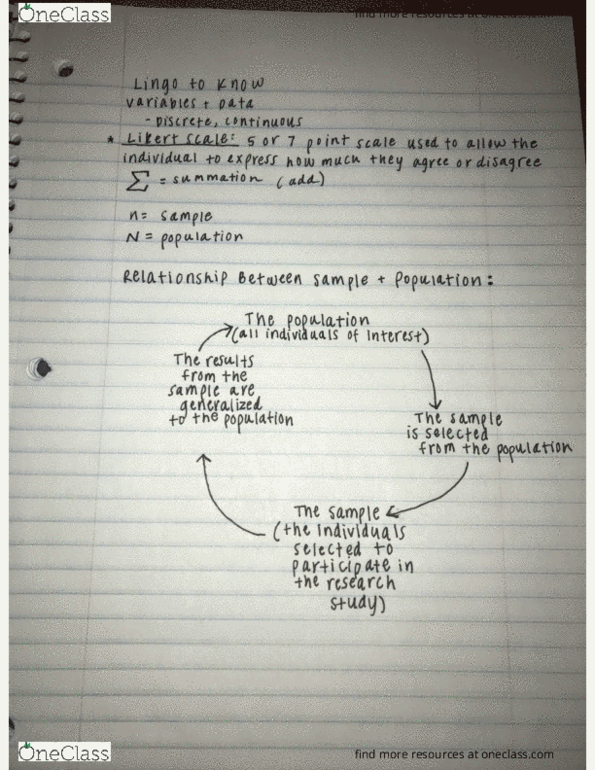 OneClass
find more resources at oneclass.com
Lingo to know
variables + data
- Discrete, continuous
* Likert scale: 5 or 7 point scale used to allow the
individual to express how much they agree or disagree
Σ = summation (add)
n = sample
N = population
Relationship Between sample + Population:
The population
(all individuals of interest)
The results
from the
sample are
generalized
to the population
The sample
is selected
from the population
The sample
(the individuals
selected to
participate in
the research
study)
OneClass
find more resources at oneclass.com